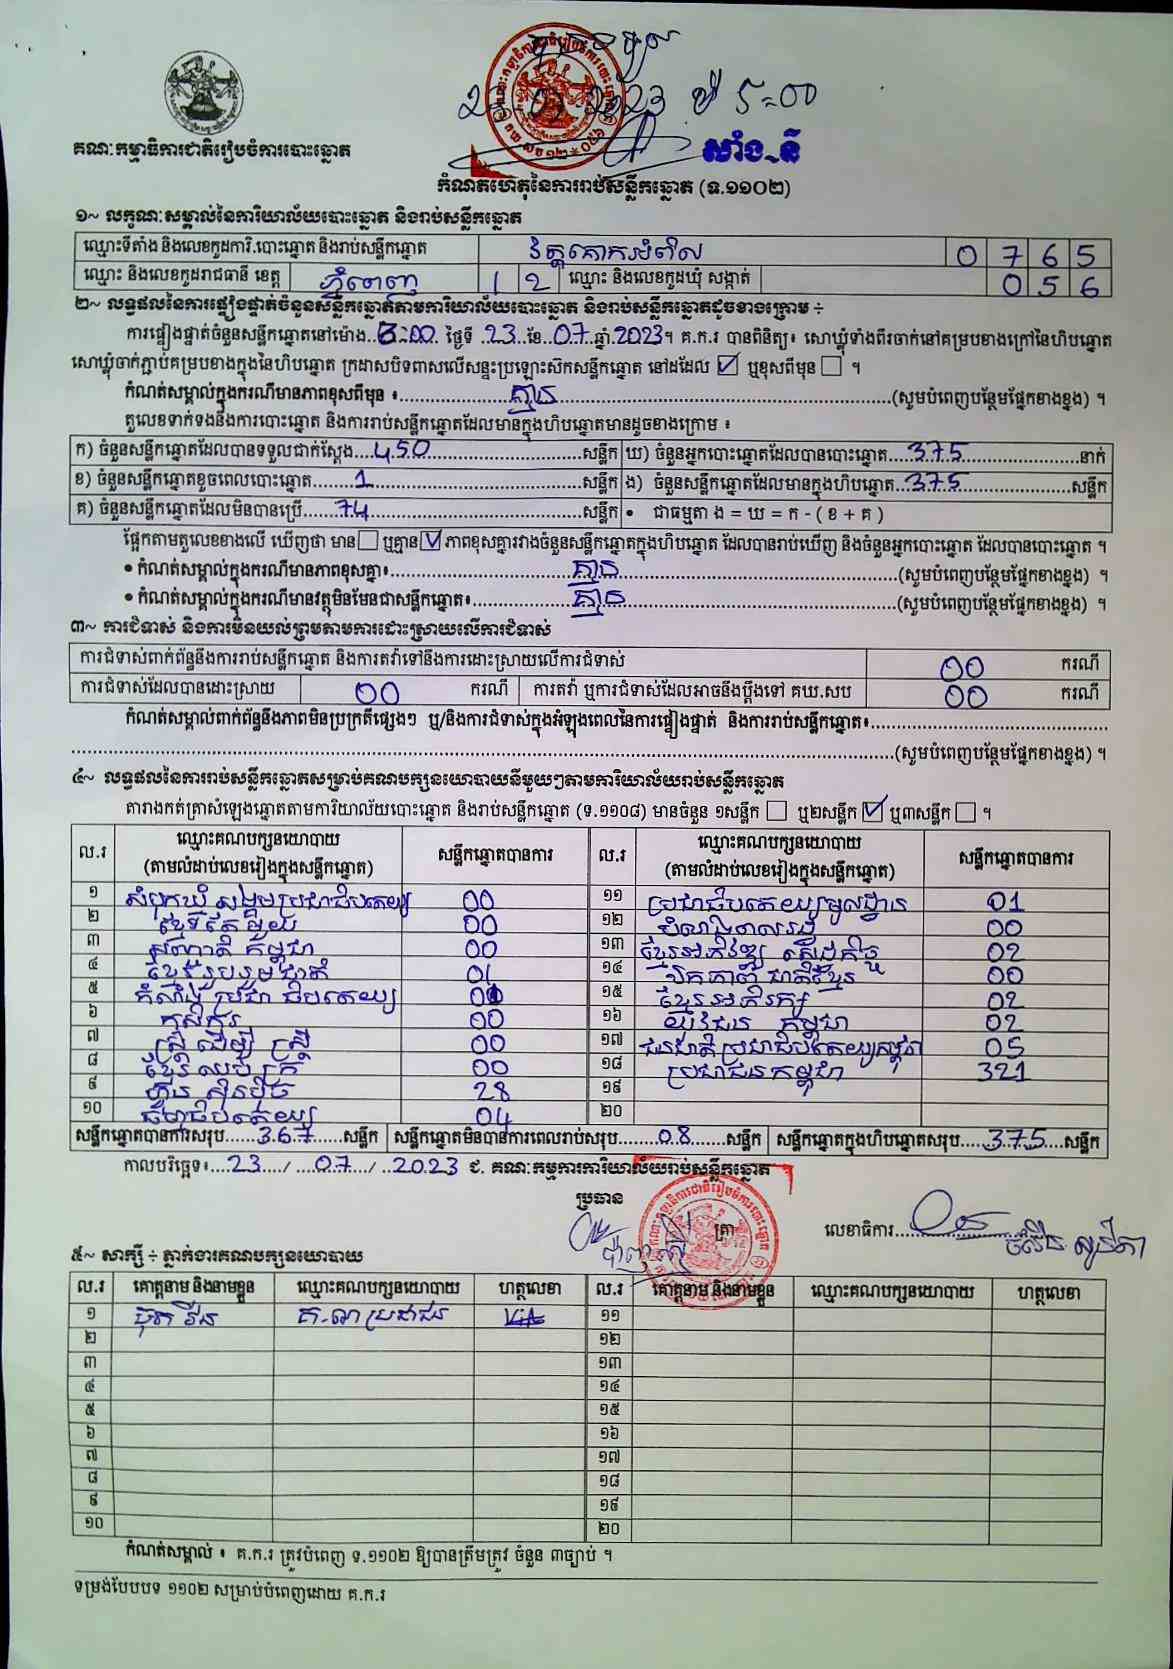 គណៈកម្មាធិការជាតិរៀបចំការបោះឆ្នោត
ម៉ី 5=00
សាំង-នី
កំណត់ហេតុនៃការរាប់សន្លឹកឆ្នោត (ទ.១១០២)
១~ លក្ខណៈសម្គាល់នៃការិយាល័យបោះឆ្នោត និងរាប់សន្លឹកឆ្នោត
ឈ្មោះទីតាំង និងលេខកូដការិ.បោះឆ្នោត និងរាប់សន្លឹកឆ្នោត 0 7 6 5
ឈ្មោះ និងលេខកូដរាជធានី ខេត្ត ភ្នំពេញ 1 2 ឈ្មោះ និងលេខកូដឃុំ សង្កាត់ 0 5 6
២~ លទ្ធផលនៃការផ្ទៀងផ្ទាត់ចំនួនសន្លឹកឆ្នោតតាមការិយាល័យបោះឆ្នោត និងរាប់សន្លឹកឆ្នោតដូចខាងក្រោម ÷
ការផ្ទៀងផ្ទាត់ចំនួនសន្លឹកឆ្នោតនៅម៉ោង ថ្ងៃទី 23 ខែ 07 ឆ្នាំ 2023។ គ.ក.រ បានពិនិត្យ៖ សោឃ្លុំទាំងពីរចាក់នៅគម្របខាងក្រៅនៃហិបឆ្នោត
សោឃ្លុំចាក់ភ្ជាប់គម្របខាងក្នុងនៃហិបឆ្នោត ក្រដាសបិទពាសលើសន្ទះប្រឡោះស៊កសន្លឹកឆ្នោត នៅដដែល ☑ ឬខុសពីមុន ☐ ។
កំណត់សម្គាល់ក្នុងករណីមានភាពខុសពីមុន ៖ គ្មាន (សូមបំពេញបន្ថែមផ្នែកខាងខ្នង) ។
តួលេខទាក់ទងនឹងការបោះឆ្នោត និងការរាប់សន្លឹកឆ្នោតដែលមានក្នុងហិបឆ្នោតមានដូចខាងក្រោម ៖
ក) ចំនួនសន្លឹកឆ្នោតដែលបានទទួលជាក់ស្តែង 450 សន្លឹក ឃ) ចំនួនអ្នកបោះឆ្នោតដែលបានបោះឆ្នោត 375 នាក់
ខ) ចំនួនសន្លឹកឆ្នោតខូចពេលបោះឆ្នោត 1 សន្លឹក ង) ចំនួនសន្លឹកឆ្នោតដែលមានក្នុងហិបឆ្នោត 375 សន្លឹក
គ) ចំនួនសន្លឹកឆ្នោតដែលមិនបានប្រើ 74 សន្លឹក • ជាធម្មតា ង = ឃ = ក - ( ខ + គ )
ផ្អែកតាមតួលេខខាងលើ ឃើញថា មាន ☐ ឬគ្មាន ☑ ភាពខុសគ្នារវាងចំនួនសន្លឹកឆ្នោតក្នុងហិបឆ្នោត ដែលបានរាប់ឃើញ និងចំនួនអ្នកបោះឆ្នោត ដែលបានបោះឆ្នោត ។
• កំណត់សម្គាល់ក្នុងករណីមានភាពខុសគ្នា៖ គ្មាន (សូមបំពេញបន្ថែមផ្នែកខាងខ្នង) ។
• កំណត់សម្គាល់ក្នុងករណីមានវត្ថុមិនមែនជាសន្លឹកឆ្នោត៖ គ្មាន (សូមបំពេញបន្ថែមផ្នែកខាងខ្នង) ។
៣~ ការជំទាស់ និងការមិនយល់ព្រមតាមការដោះស្រាយលើការជំទាស់
ការជំទាស់ពាក់ព័ន្ធនឹងការរាប់សន្លឹកឆ្នោត និងការតវ៉ាទៅនឹងការដោះស្រាយលើការជំទាស់ 00 ករណី
ការជំទាស់ដែលបានដោះស្រាយ 00 ករណី ការតវ៉ា ឬការជំទាស់ដែលអាចនឹងប្តឹងទៅ គឃ.សប 00 ករណី
កំណត់សម្គាល់ពាក់ព័ន្ធនឹងភាពមិនប្រក្រតីផ្សេងៗ ឬ/និងការជំទាស់ក្នុងអំឡុងពេលនៃការផ្ទៀងផ្ទាត់ និងការរាប់សន្លឹកឆ្នោត៖
(សូមបំពេញបន្ថែមផ្នែកខាងខ្នង) ។
៤~ លទ្ធផលនៃការរាប់សន្លឹកឆ្នោតសម្រាប់គណបក្សនយោបាយនីមួយៗតាមការិយាល័យរាប់សន្លឹកឆ្នោត
តារាងកត់ត្រាសំឡេងឆ្នោតតាមការិយាល័យបោះឆ្នោត និងរាប់សន្លឹកឆ្នោត (ទ.១១០៨) មានចំនួន ១សន្លឹក ☐ ឬ២សន្លឹក ☑ ឬ៣សន្លឹក ☐ ។
ល.រ ឈ្មោះគណបក្សនយោបាយ (តាមលំដាប់លេខរៀងក្នុងសន្លឹកឆ្នោត) សន្លឹកឆ្នោតបានការ ល.រ ឈ្មោះគណបក្សនយោបាយ (តាមលំដាប់លេខរៀងក្នុងសន្លឹកឆ្នោត) សន្លឹកឆ្នោតបានការ
១ សំបុកឃ្មុំសង្គមប្រជាធិបតេយ្យ 00 ១១ ប្រជាធិបតេយ្យមូលដ្ឋាន 01
២ ខ្មែរតែមួយ 00 ១២ 00
៣ កម្ពុជា 00 ១៣ ខ្មែរអភិវឌ្ឍ សេដ្ឋកិច្ច 02
៤ ខ្មែររួបរួមជាតិ ១៤ ជាតិខ្មែរ 00
៥ កំលាំង ប្រជាធិបតេយ្យ ១៥ ខ្មែរអភិរក្ស 02
៦ កសិករ 00 ១៦ យុវជន កម្ពុជា 02
៧ ស្ត្រី ដើម្បី ស្ត្រី 00 ១៧ ជនជាតិប្រជាធិបតេយ្យកម្ពុជា 05
៨ ខ្មែរ ឈប់ក្រ 00 ១៨ ប្រជាជនកម្ពុជា 321
៩ ហ្វ៊ុនស៊ិនប៉ិច 28 ១៩
១០ ធម្មាធិបតេយ្យ 04 ២០
សន្លឹកឆ្នោតបានការសរុប 367 សន្លឹក សន្លឹកឆ្នោតមិនបានការពេលរាប់សរុប 08 សន្លឹក សន្លឹកឆ្នោតក្នុងហិបឆ្នោតសរុប 375 សន្លឹក
កាលបរិច្ឆេទ៖ 23 / 07 / 2023 ជ. គណៈកម្មការការិយាល័យរាប់សន្លឹកឆ្នោត
ប្រធាន ត្រា លេខាធិការ
៥~ សាក្សី ÷ ភ្នាក់ងារគណបក្សនយោបាយ
ល.រ គោត្តនាម និងនាមខ្លួន ឈ្មោះគណបក្សនយោបាយ ហត្ថលេខា ល.រ គោត្តនាម និងនាមខ្លួន ឈ្មោះគណបក្សនយោបាយ ហត្ថលេខា
១ គ.បក្ស ប្រជាជន ១១
២ ១២
៣ ១៣
៤ ១៤
៥ ១៥
៦ ១៦
៧ ១៧
៨ ១៨
៩ ១៩
១០ ២០
កំណត់សម្គាល់ ៖ គ.ក.រ ត្រូវបំពេញ ទ.១១០២ ឱ្យបានត្រឹមត្រូវ ចំនួន ៣ច្បាប់ ។
ទម្រង់បែបបទ ១១០២ សម្រាប់បំពេញដោយ គ.ក.រ